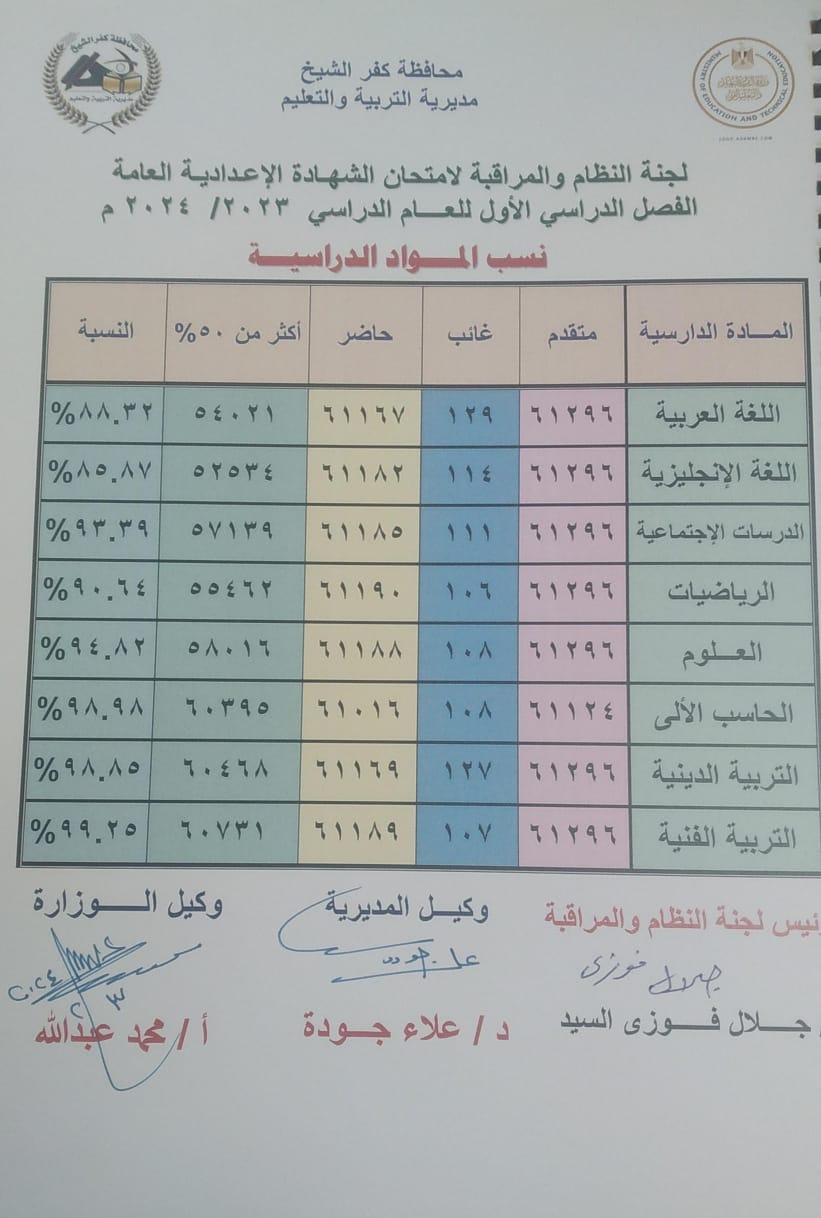 محافظة كفر الشيخ
مديرية التربية والتعليم
محافظة كفر الشيخ
مديرية التربية والتعليم
MINISTRY OF EDUCATION AND TECHNICAL EDUCATION
LOGO.ADAMBE.COM
لجنة النظام والمراقبة لامتحان الشهادة الإعدادية العامة
الفصل الدراسي الأول للعام الدراسي ٢٠٢٣/ ٢٠٢٤ م
نسب المواد الدراسية
المادة الدارسية متقدم غائب حاضر أكثر من ٥٠% النسبة
اللغة العربية ٦١٢٩٦ ١٢٩ ٦١١٦٧ ٥٤٠٢١ ٨٨.٣٢%
اللغة الإنجليزية ٦١٢٩٦ ١١٤ ٦١١٨٢ ٥٢٥٣٤ ٨٥.٨٧%
الدرسات الإجتماعية ٦١٢٩٦ ١١١ ٦١١٨٥ ٥٧١٣٩ ٩٣.٣٩%
الرياضيات ٦١٢٩٦ ١٠٦ ٦١١٩٠ ٥٥٤٦٢ ٩٠.٦٤%
العلوم ٦١٢٩٦ ١٠٨ ٦١١٨٨ ٥٨٠١٦ ٩٤.٨٢%
الحاسب الألى ٦١١٢٤ ١٠٨ ٦١٠١٦ ٦٠٣٩٥ ٩٨.٩٨%
التربية الدينية ٦١٢٩٦ ١٢٧ ٦١١٦٩ ٦٠٤٦٨ ٩٨.٨٥%
التربية الفنية ٦١٢٩٦ ١٠٧ ٦١١٨٩ ٦٠٧٣١ ٩٩.٢٥%
ئيس لجنة النظام والمراقبة وكيل المديرية وكيل الوزارة
جلال فوزى
/ جلال فوزى السيد د / علاء جودة أ / محمد عبدالله